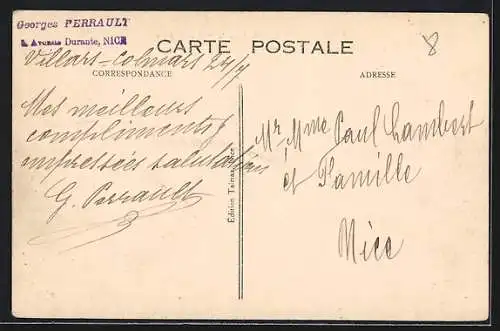 Georges PERRAULT
Avenue Durante, NICE
CARTE POSTALE
8
Villars-Colmars 24/7
CORRESPONDANCE
ADRESSE
Mes meilleurs
compliments &
empressées salutations
G. Perrault
Edition
Mr Mme Paul Lambert
et Famille
Nice